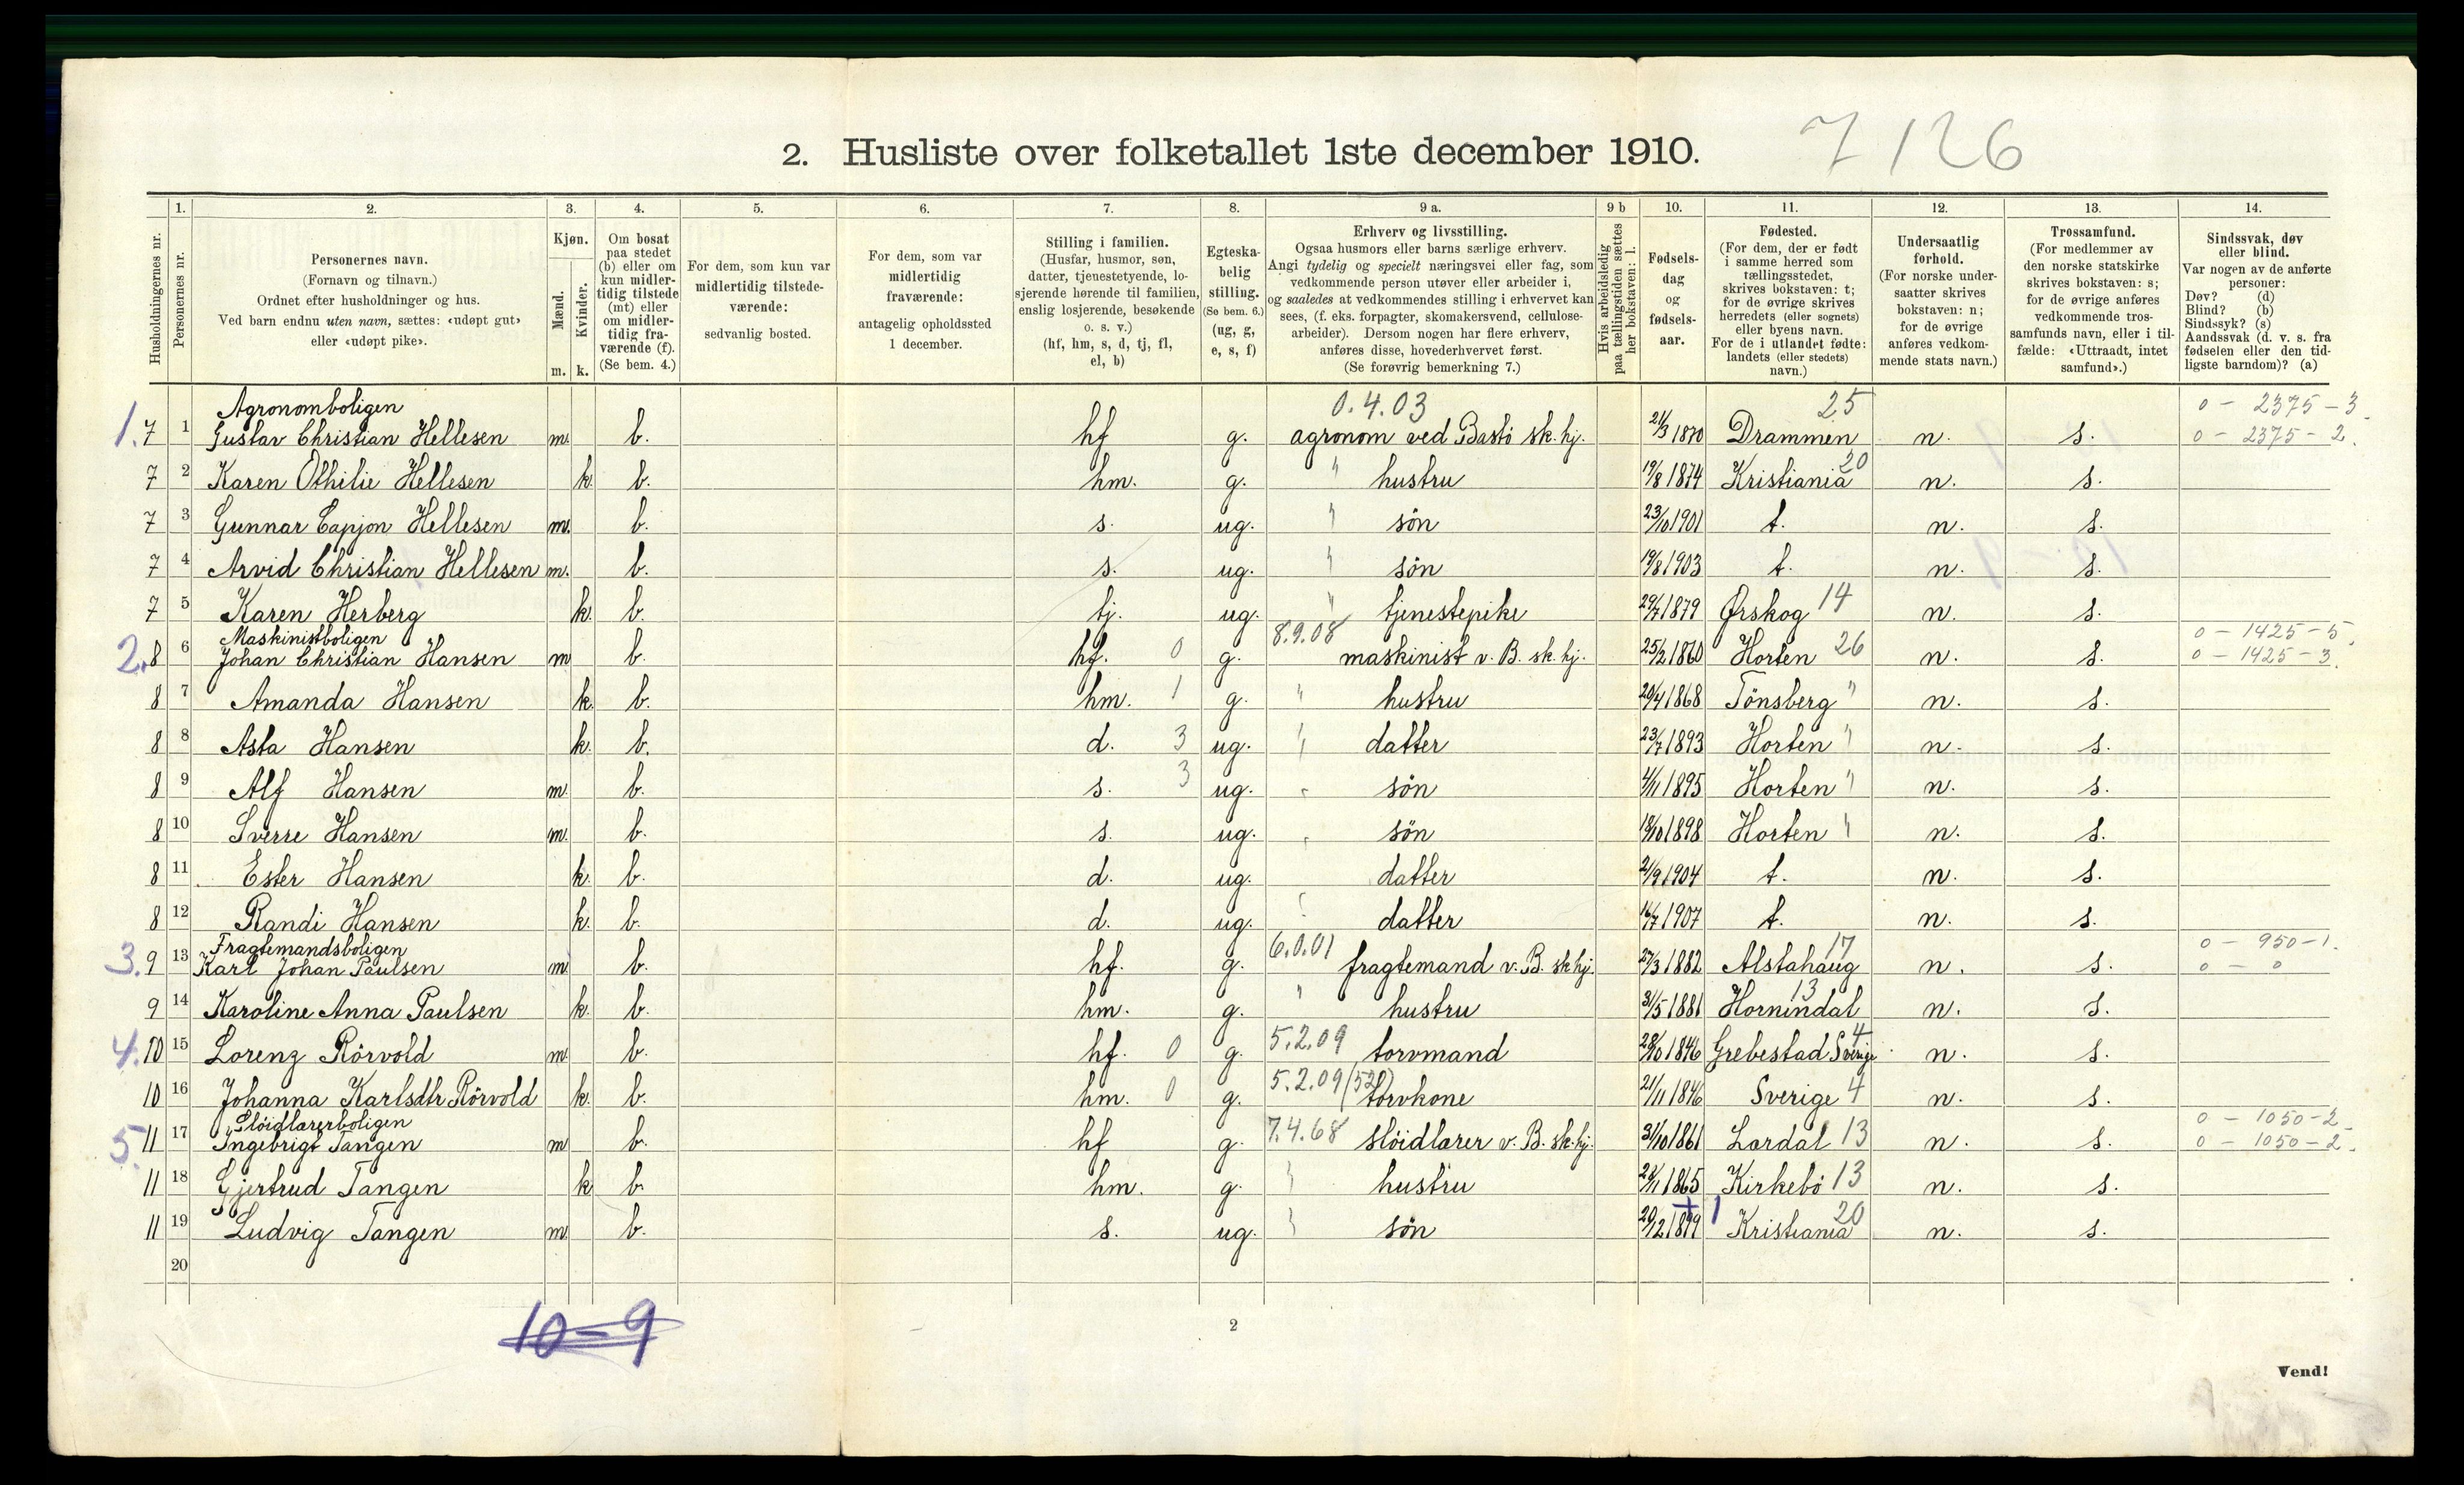 7126
2. Husliste over folketallet 1ste december 1910.
1. 2. 3. 4. 5. 6. 7. 8. 9 a. 9 b 10. 11. 12. 13. 14.
Husholdningernes nr.
Personernes nr.
Personernes navn.
(Fornavn og tilnavn.)
Ordnet efter husholdninger og hus.
Ved barn endnu uten navn, sættes: «udøpt gut»
eller «udøpt pike».
Kjøn.
Mænd.
Kvinder.
m. k.
Om bosat
paa stedet
(b) eller om
kun midler-
tidig tilstede
(mt) eller
om midler-
tidig fra-
værende (f).
(Se bem. 4.)
For dem, som kun var
midlertidig tilstede-
værende:
sedvanlig bosted.
For dem, som var
midlertidig
fraværende:
antagelig opholdssted
1 december.
Stilling i familien.
(Husfar, husmor, søn,
datter, tjenestetyende, lo-
sjerende hørende til familien,
enslig losjerende, besøkende
o. s. v.)
(hf, hm, s, d, tj, fl,
el, b)
Egteska-
belig
stilling.
(Se bem. 6.)
(ug, g,
e, s, f)
Erhverv og livsstilling.
Ogsaa husmors eller barns særlige erhverv.
Angi tydelig og specielt næringsvei eller fag, som
vedkommende person utøver eller arbeider i,
og saaledes at vedkommendes stilling i erhvervet kan
sees, (f. eks. forpagter, skomakersvend, cellulose-
arbeider). Dersom nogen har flere erhverv,
anføres disse, hovederhvervet først.
(Se forøvrig bemerkning 7.)
Hvis arbeidsledig
paa tællingstiden sættes
her bokstaven: l.
Fødsels-
dag
og
fødsels-
aar.
Fødested.
(For dem, der er født
i samme herred som
tællingsstedet,
skrives bokstaven: t;
for de øvrige skrives
herredets (eller sognets)
eller byens navn.
For de i utlandet fødte:
landets (eller stedets)
navn.)
Undersaatlig
forhold.
(For norske under-
saatter skrives
bokstaven: n;
for de øvrige
anføres vedkom-
mende stats navn.)
Trossamfund.
(For medlemmer av
den norske statskirke
skrives bokstaven: s;
for de øvrige anføres
vedkommende tros-
samfunds navn, eller i til-
fælde: «Uttraadt, intet
samfund».)
Sindssvak, døv
eller blind.
Var nogen av de anførte
personer:
Døv? (d)
Blind? (b)
Sindssyk? (s)
Aandssvak (d. v. s. fra
fødselen eller den tid-
ligste barndom)? (a)
Agronomboligen 0.4.03 25 0 - 2375 - 3
1. 7 1 Gustav Christian Hellesen m. b. hf g. agronom ved Bastö sk. hj. 21/3 1870 Drammen n. s. 0 - 2375 - 2.
7 2 Karen Othilie Hellesen k. b. hm. g. " hustru 19/8 1874 Kristiania 20 n. s.
7 3 Gunnar Capjon Hellesen m. b. s. ug. " sön 23/10 1901 t. n. s.
7 4 Arvid Christian Hellesen m. b. s. ug. " sön 19/8 1903 t. n. s.
7 5 Karen Herberg k. b. tj. ug. " tjenestepike 29/7 1879 Ørskog 14 n. s.
Maskinistboligen 8.9.08 0 - 1425 - 5.
2. 8 6 Johan Christian Hansen m b. hf. 0 g. maskinist v. B. sk. hj. 25/2 1860 Horten 26 n. s. 0 - 1425 - 3.
8 7 Amanda Hansen k. b. hm. 1 g. " hustru 20/4 1868 Tönsberg " n. s.
8 8 Asta Hansen k. b. d. 3 ug. " datter 23/7 1893 Horten " n. s.
8 9 Alf Hansen m. b. s. 3 ug. " sön 4/11 1895 Horten " n. s.
8 10 Sverre Hansen m. b. s. ug. " sön 18/10 1898 Horten " n. s.
8 11 Ester Hansen k. b. d. ug. datter 21/9 1904 t. n. s.
8 12 Randi Hansen k. b. d. ug. " datter 16/7 1907 t. n. s.
Fragtemandsboligen 6.0.01 17 0 - 950 - 1.
3. 9 13 Karl Johan Paulsen m b. hf. g. fragtemand v. B. sk hj. 27/3 1882 Alstahaug n. s. 0 - 0
9 14 Karoline Anna Paulsen k. b. hm. g. " hustru 31/5 1881 Hornindal 13 n. s.
4. 10 15 Lorenz Rörvold m. b. hf. 0 g. 5.2.09 torvmand 28/10 1846 Grebestad Sverige 4 n. s.
10 16 Johanna Karlsdtr Rörvold k. b. hm. 0 g. 5.2.09 (52) torvkone 21/11 1846 Sverige 4 n. s.
Slöidlærerboligen 0 - 1050 - 2
5. 11 17 Ingebrigt Tangen m b. hf g. 7.4.68 slöidlærer v. B. sk. hj. 31/10 1861 Lardal 13 n. s. 0 - 1050 - 2.
11 18 Gjertrud Tangen k b. hm. g. " hustru 21/1 1865 Kirkebö 13 n. s.
11 19 Ludvig Tangen m. b. s. ug. " sön 20/12 1899 1 Kristiania 20 n. s.
20
10 - 9
2
Vend!